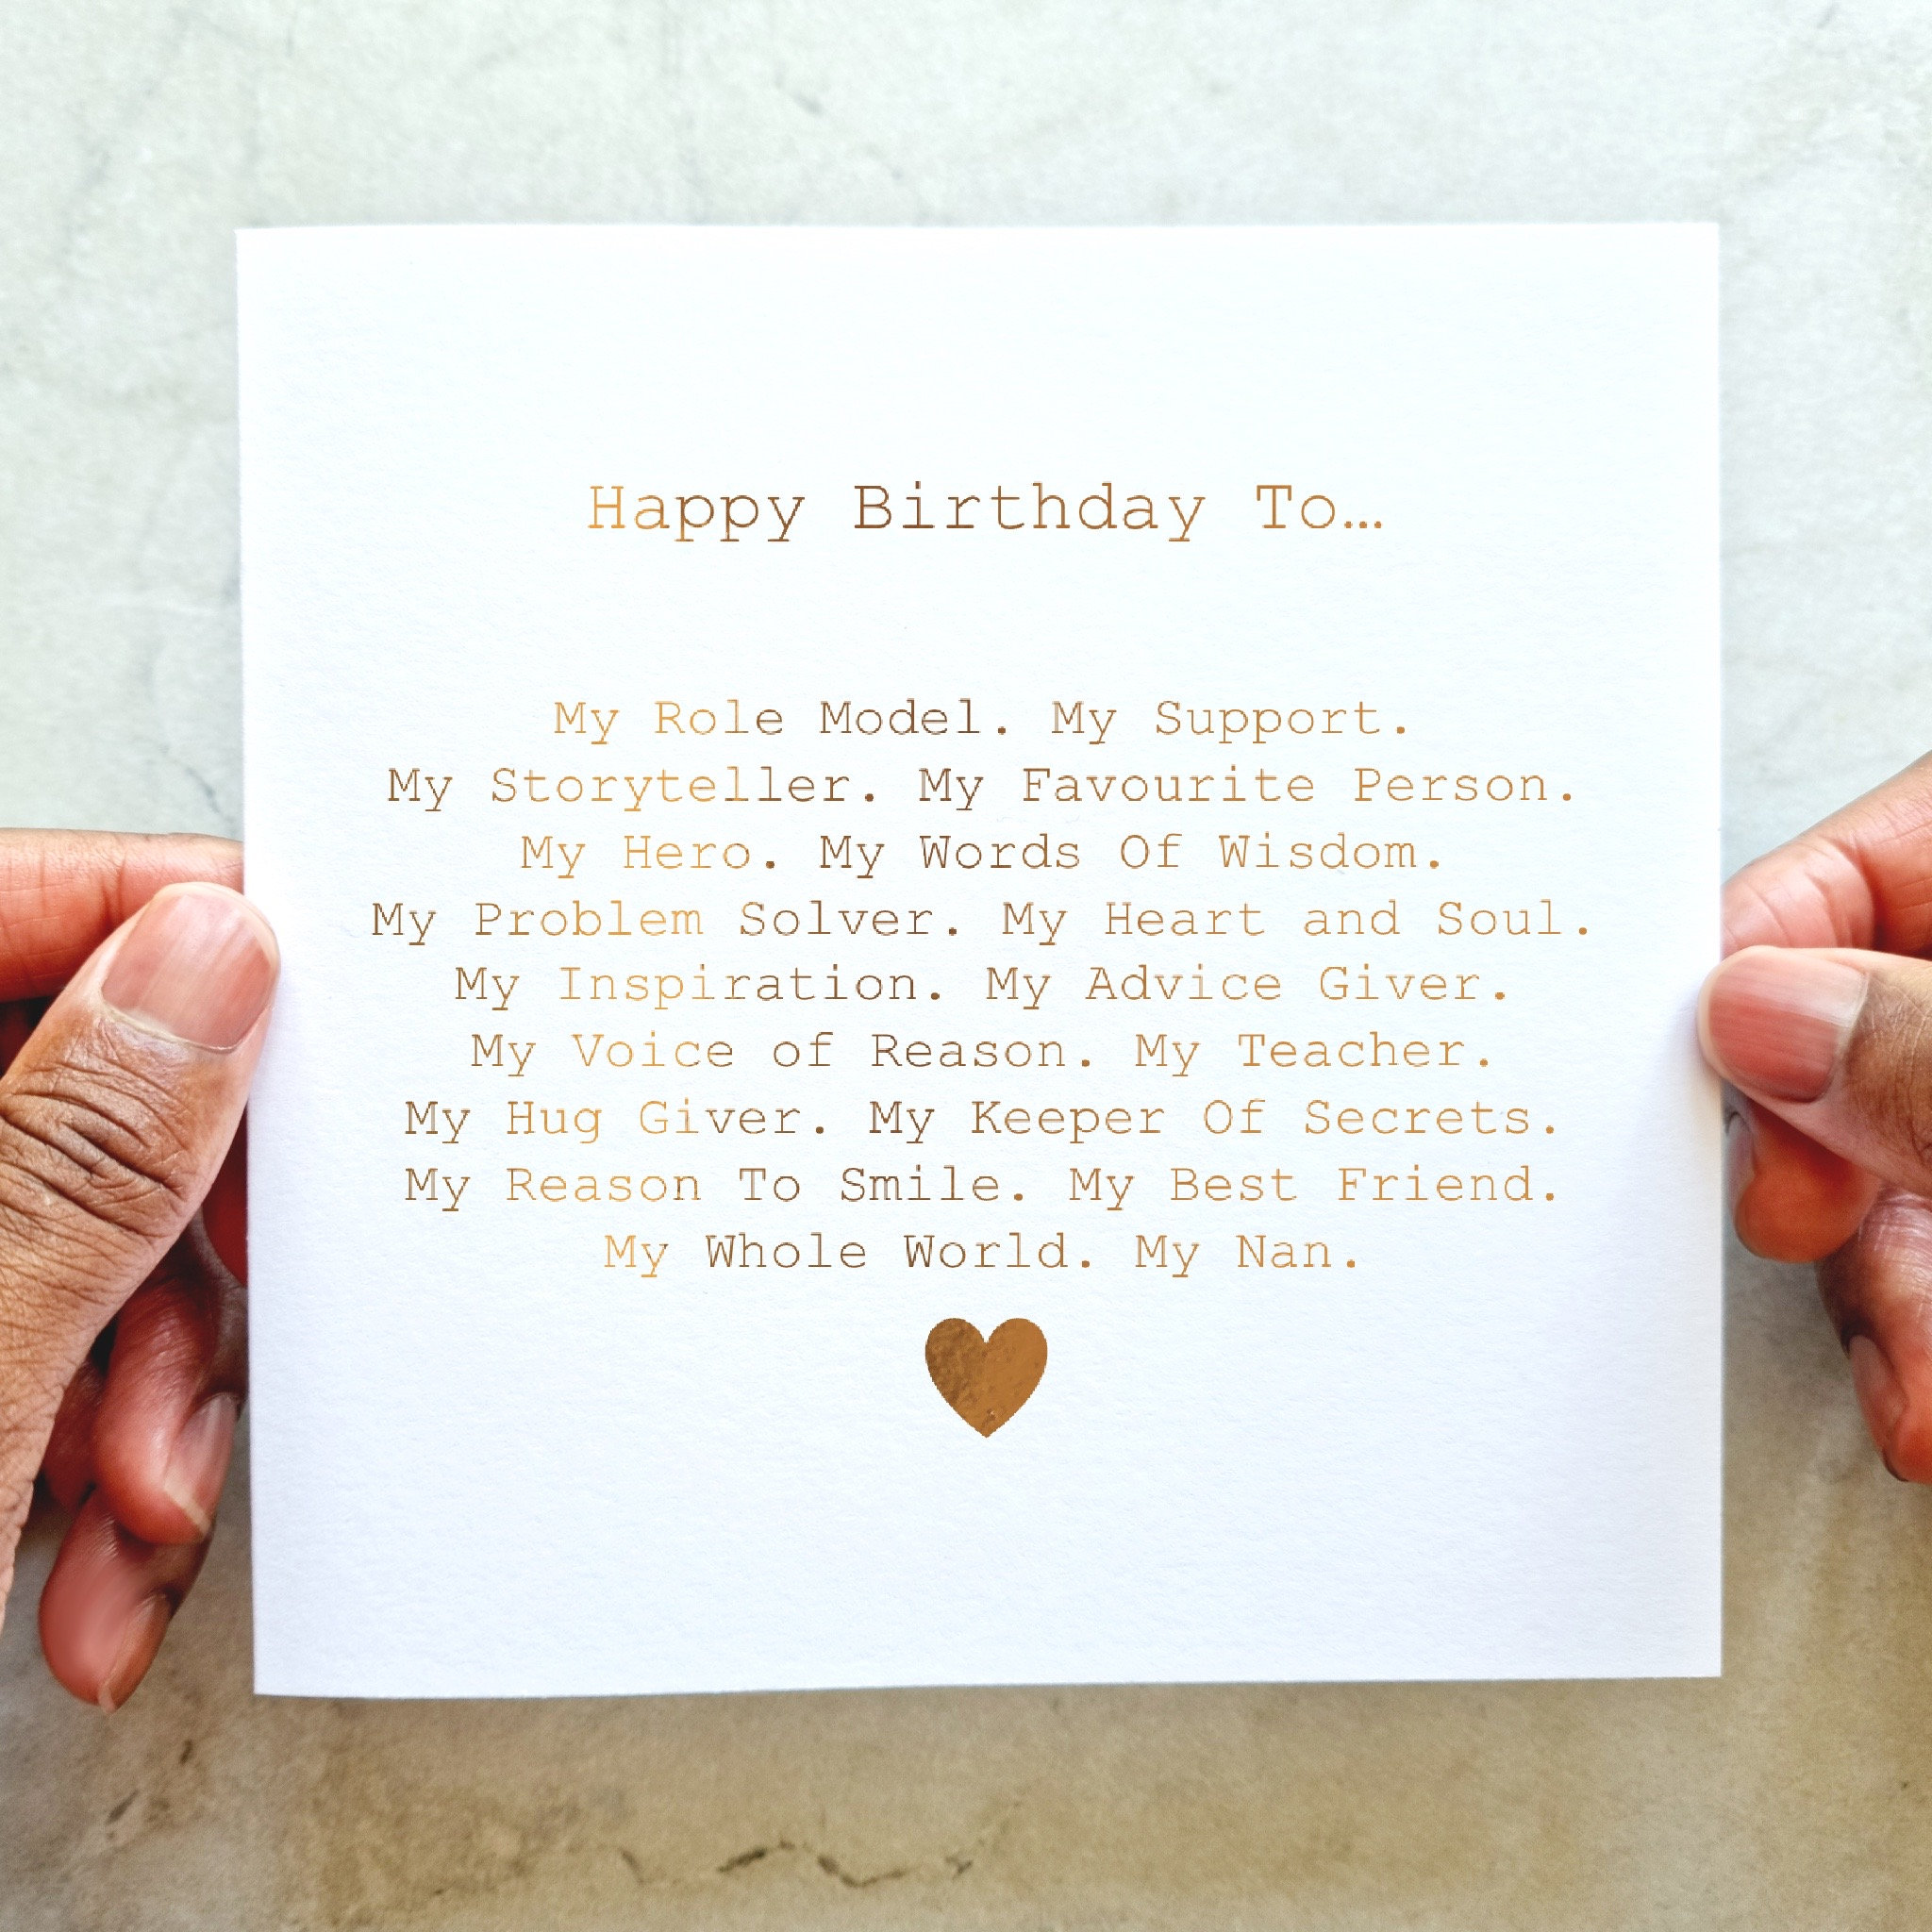 Happy Birthday To...
My Role Model. My Support.
My Storyteller. My Favourite Person.
My Hero. My Words Of Wisdom.
My Problem Solver. My Heart and Soul.
My Inspiration. My Advice Giver.
My Voice of Reason. My Teacher.
My Hug Giver. My Keeper Of Secrets.
My Reason To Smile. My Best Friend.
My Whole World. My Nan.